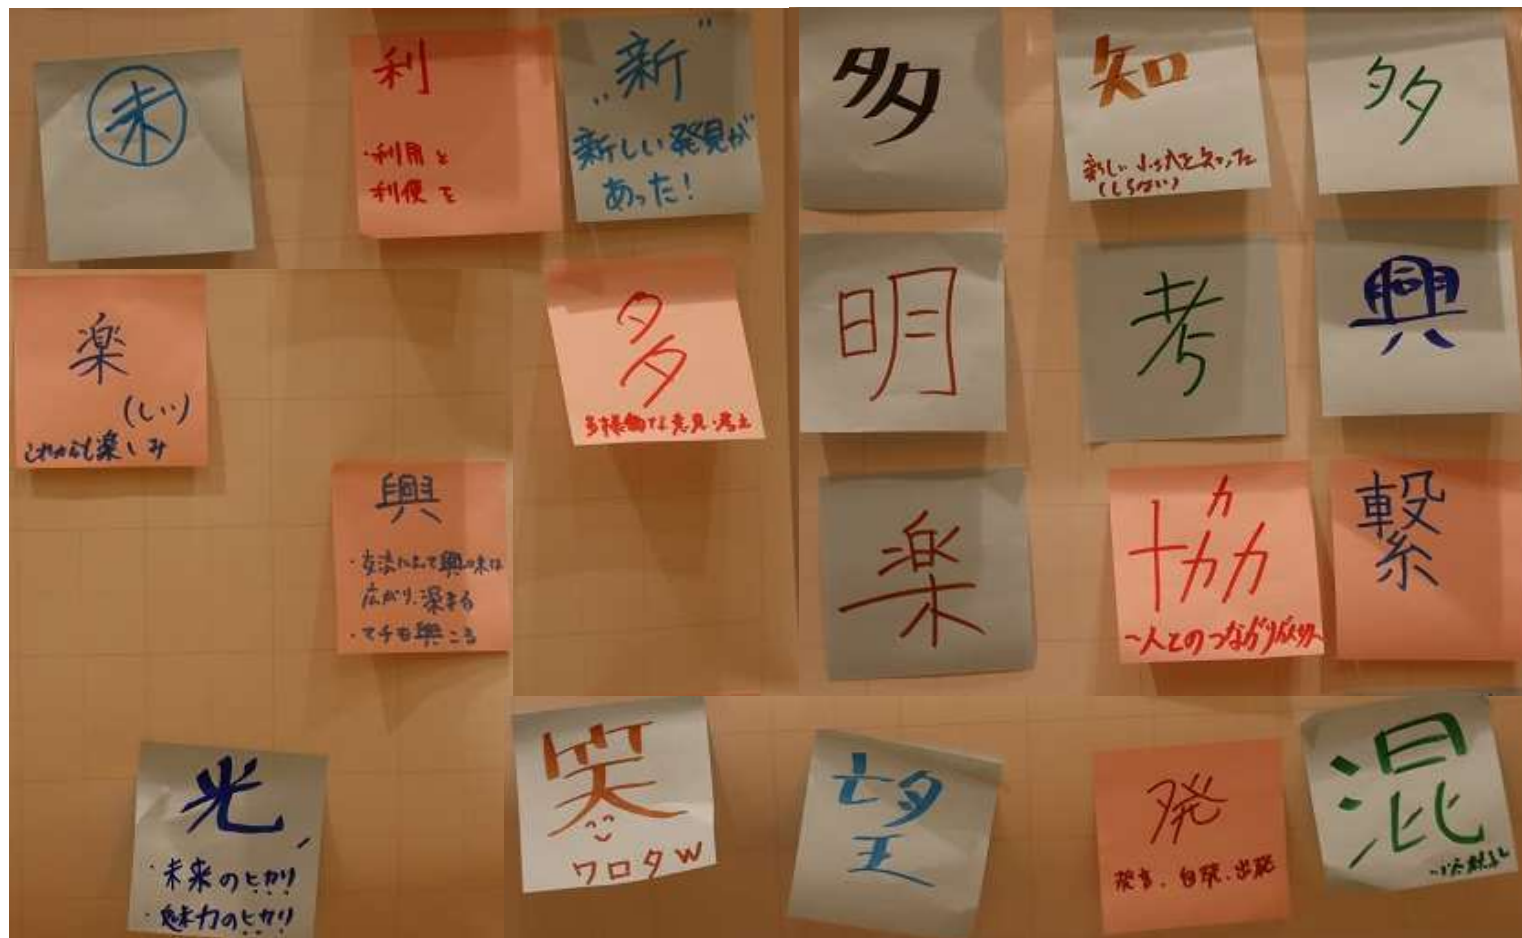 未
利
・利用と
利便と
"新"
新しい発見が
あった！
多
知
新しい
(しらない)
多
楽
(しい)
これからも楽しみ
多
多様的な意見・考え
明
考
興
興
・交流によって興味は
広がり、深まる
・マチを興こる
楽
協
〜人とのつながりが大切〜
繋
光
・未来のヒカリ
・魅力のヒカリ
笑
ワロタw
望
発
発言、自発、出発
混